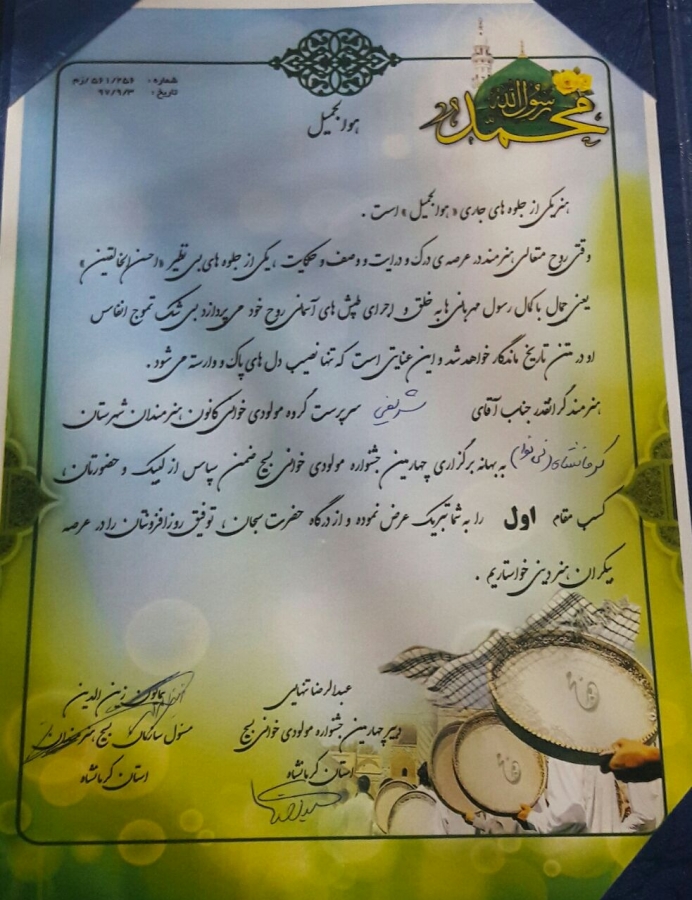 شماره: ۵۶۱/۲۵۶/زم
تاریخ: ۹۷/۹/۳
محمد رسول الله
هوالجمیل
هنر یکی از جلوه های جاری «هوالجمیل» است.
وقتی روح متعالی هنرمند در عرصه ی درک و درایت و وصف و حکایت، یکی از جلوه های بی نظیر «احسن الخالقین»
یعنی جمال با کمال رسول مهربانی ها به خلق و اجرای طپش های آسمانی روح خود می پردازد بی شک تموج انفاس
او در متن تاریخ ماندگار خواهد شد و این عنایتی است که تنها نصیب دل های پاک و وارسته می شود.
هنرمند گرانقدر جناب آقای شریفی سرپرست گروه مولودی خوانی کانون هنرمندان شهرستان
کرمانشاه (نی نوا) به بهانه برگزاری چهارمین جشنواره مولودی خوانی بسیج ضمن سپاس از لبیک و حضورتان،
کسب مقام اول را به شما تبریک عرض نموده و از درگاه حضرت سبحان، توفیق روزافزونتان را در عرصه
بیکران هنر دینی خواستاریم.
عبدالرضا تنهایی
دبیر چهارمین جشنواره مولودی خوانی بسیج
استان کرمانشاه
زین الدین
مسئول سازمان بسیج هنرمندان
استان کرمانشاه